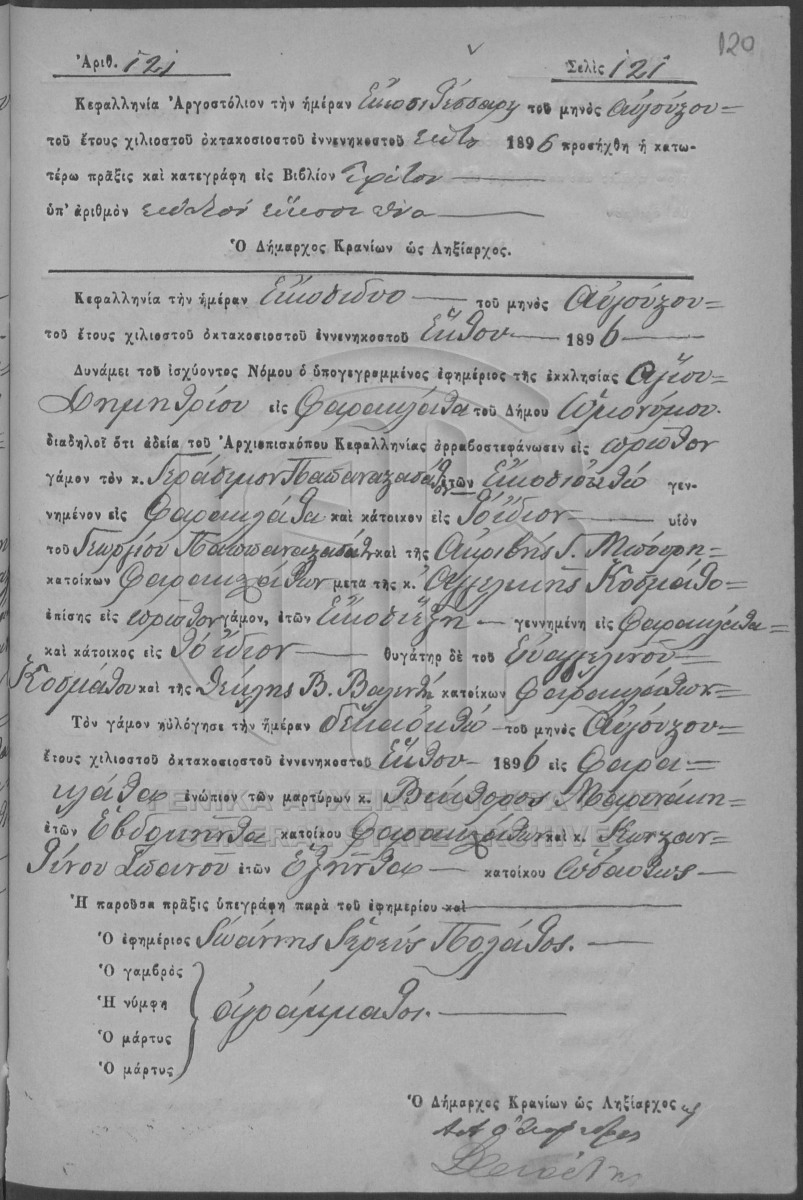 120
Ἀριθ. 121 Σελὶς 121
Κεφαλληνία Ἀργοστόλιον τὴν ἡμέραν Εἴκοσι Τέσσαρες τοῦ μηνὸς Αὐγούστου
τοῦ ἔτους χιλιοστοῦ ὀκτακοσιοστοῦ ἐννενηκοστοῦ ἕκτου 1896 προσήχθη ἡ κατω-
τέρω πρᾶξις καὶ κατεγράφη εἰς Βιβλίον Πρῶτον
ὑπ' ἀριθμὸν ἑκατὸν εἴκοσι ἕνα
Ὁ Δήμαρχος Κρανίων ὡς Ληξίαρχος.
Κεφαλληνία τὴν ἡμέραν Εἴκοσιδυο τοῦ μηνὸς Αὐγούστου
τοῦ ἔτους χιλιοστοῦ ὀκτακοσιοστοῦ ἐννενηκοστοῦ Ἕκτου 1896
Δυνάμει τοῦ ἰσχύοντος Νόμου ὁ ὑπογεγραμμένος ἐφημέριος τῆς ἐκκλησίας Ἁγίου
Δημητρίου εἰς Φαρακλάτα τοῦ Δήμου Ὁμονύμου.
διαδηλοῖ ὅτι ἀδεία τοῦ Ἀρχιεπισκόπου Κεφαλληνίας ἀρραβοστεφάνωσεν εἰς πρῶτον
γάμον τὸν κ. Γεράσιμον Παπαναγασάτον ἐτῶν Εἴκοσιὀκτὼ γεν-
νημένον εἰς Φαρακλάτα καὶ κάτοικον εἰς Τὸ ἴδιον υἱὸν
τοῦ Γεωργίου καὶ τῆς Ἀκριβῆς Γ.
κατοίκων Φαρακλάτων μετὰ τῆς κ. Ἀγγελικῆς Κοσμάτο
ἐπίσης εἰς πρῶτον γάμον, ἐτῶν Εἴκοσιἕξη γεννημένη εἰς Φαρακλάτα
καὶ κάτοικος εἰς Τὸ ἴδιον θυγάτηρ δὲ τοῦ Εὐαγγελινοῦ
Κοσμάτου καὶ τῆς Θέκλης Β. Βαλεντῆ κατοίκων Φαρακλάτων
Τὸν γάμον ηὐλόγησε τὴν ἡμέραν δεκαοκτὼ τοῦ μηνὸς Αὐγούστου
ἔτους χιλιοστοῦ ὀκτακοσιοστοῦ ἐννενηκοστοῦ Ἕκτου 1896 εἰς Φαρα
κλάτα ἐνώπιον τῶν μαρτύρων κ. Βίκτορος Μαρινάκη
ἐτῶν Ἑβδομῆντα κατοίκου Φαρακλάτων καὶ κ. Κωνσταν
τίνου Σπανοῦ ἐτῶν Ἑξῆντα κατοίκου Ὡσαύτως
Ἡ παροῦσα πρᾶξις ὑπεγράφη παρὰ τοῦ ἐφημερίου καὶ
Ὁ ἐφημέριος Ἰωάννης Ἱερεὺς Πολλάτος.
Ὁ γαμβρὸς
Ἡ νύμφη
ἀγράμματοι.
Ὁ μάρτυς
Ὁ μάρτυς
Ὁ Δήμαρχος Κρανίων ὡς Ληξίαρχος
ΓΕΝΙΚΑ ΑΡΧΕΙΑ ΤΟΥ ΚΡΑΤΟΥΣ